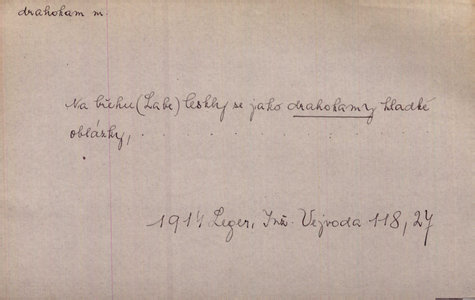 drahokam m.
Na břehu (Labe) leskly se jako drahokamy hladké
oblázky, . . . . . . . . . . . . . . .
1914 Leger, Inž. Vejvoda 118, 27